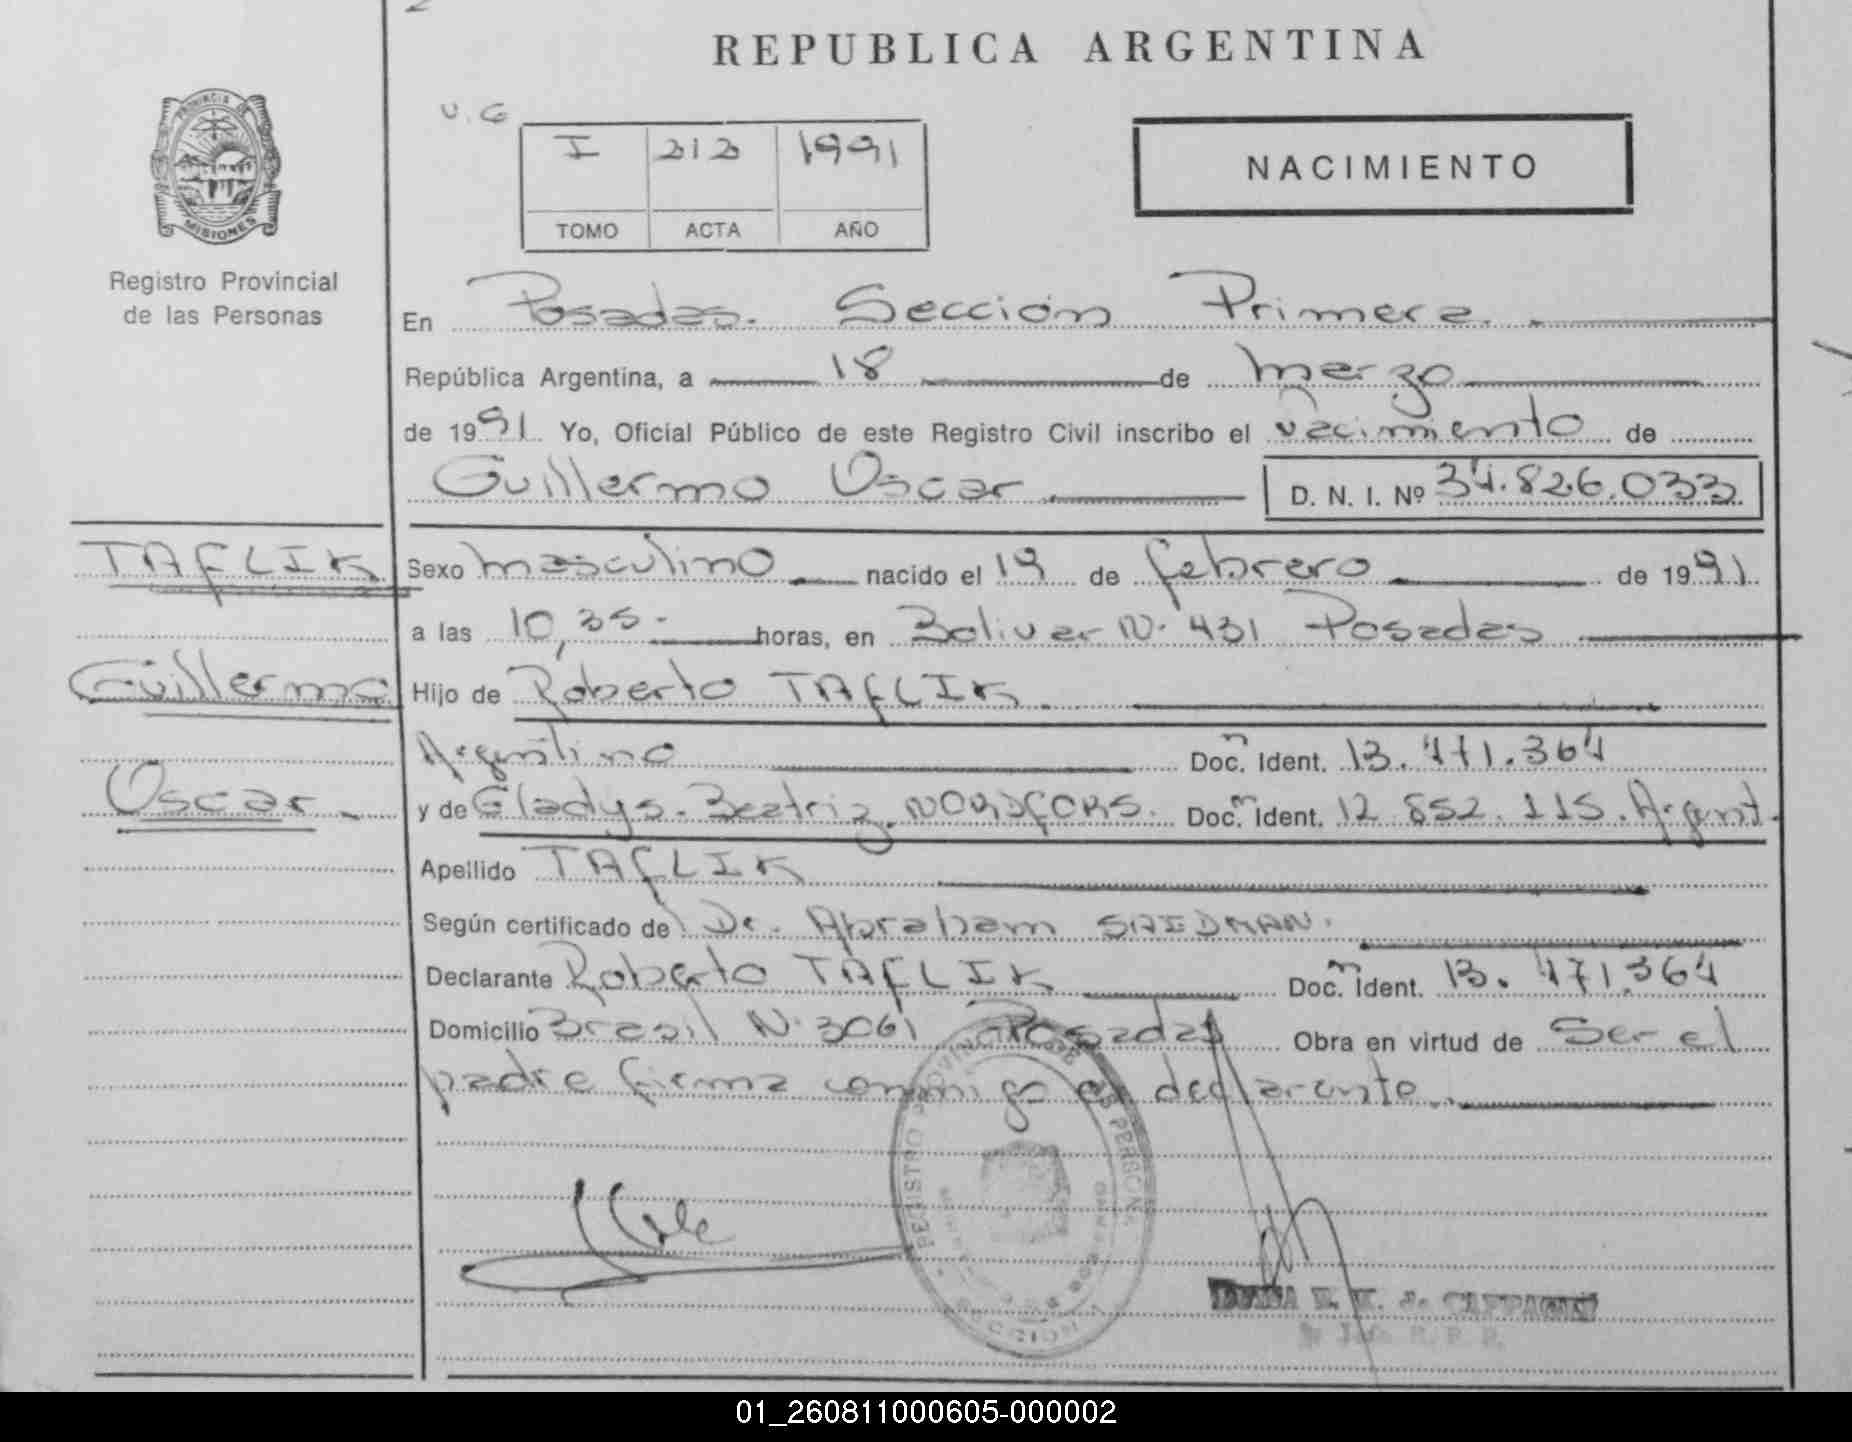 REPUBLICA ARGENTINA
PROVINCIA DE
MISIONES
Registro Provincial
de las Personas
V. G
I 212 1991
TOMO ACTA AÑO
NACIMIENTO
En Posadas. Sección Primera.
República Argentina, a 18 de marzo
de 1991 Yo, Oficial Público de este Registro Civil inscribo el nacimiento de
Guillermo Oscar D. N. I. Nº 34.826.033
TAFLIK
Sexo masculino nacido el 19 de febrero de 1991
a las 10,35- horas, en Bolivar N. 431 Posadas
Guillermo
Hijo de Roberto TAFLIK
Argentino Doc. n Ident. 13.471.364
Oscar
y de Gladys Beatriz NORDFORS. Doc. n Ident. 12.852.115. Argent.
Apellido TAFLIK
Según certificado de Dr. Abraham SAIDMAN.
Declarante Roberto TAFLIK Doc. n Ident. 13.471.364
Domicilio Brasil N. 3061 Posadas Obra en virtud de Ser el
padre firma conmigo el declarante.
REGISTRO PROVINCIAL DE LAS PERSONAS
SECCION 1
de
01_260811000605-000002